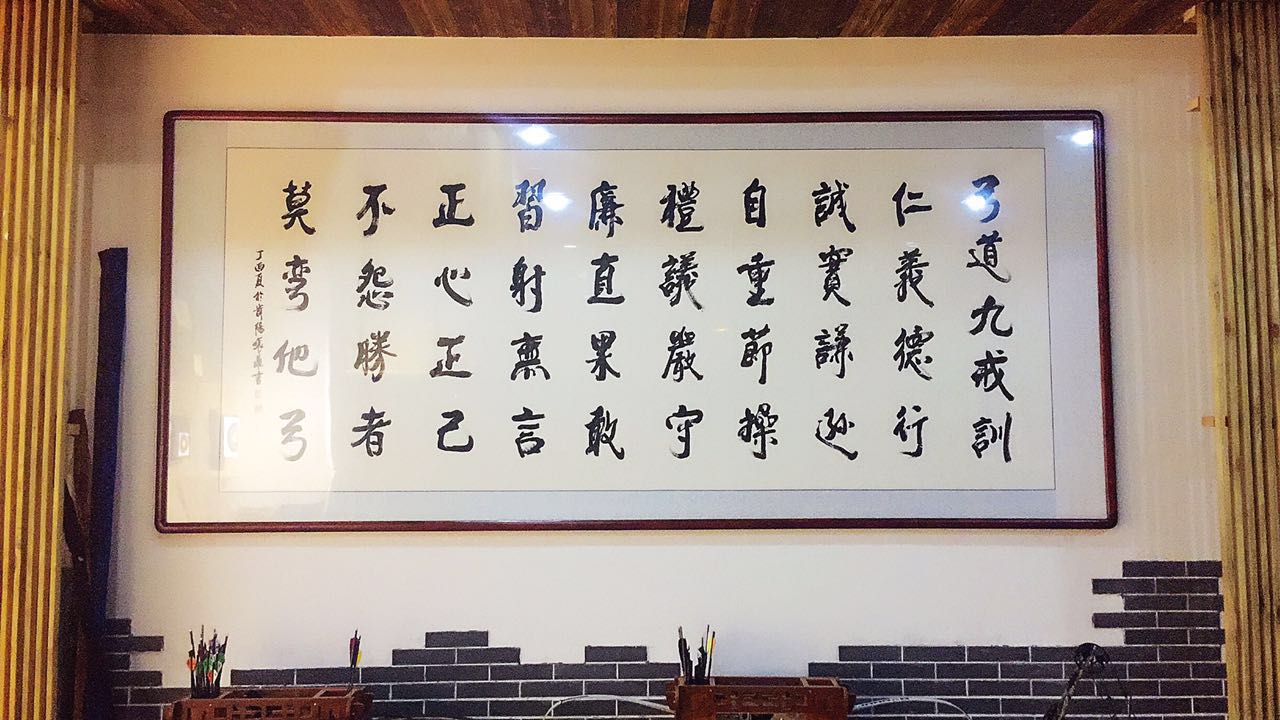 弓道九戒訓
仁義德行
誠實謙遜
自重節操
禮議嚴守
廉直果敢
習射無言
正心正己
不怨勝者
莫弯他弓
丁酉夏於